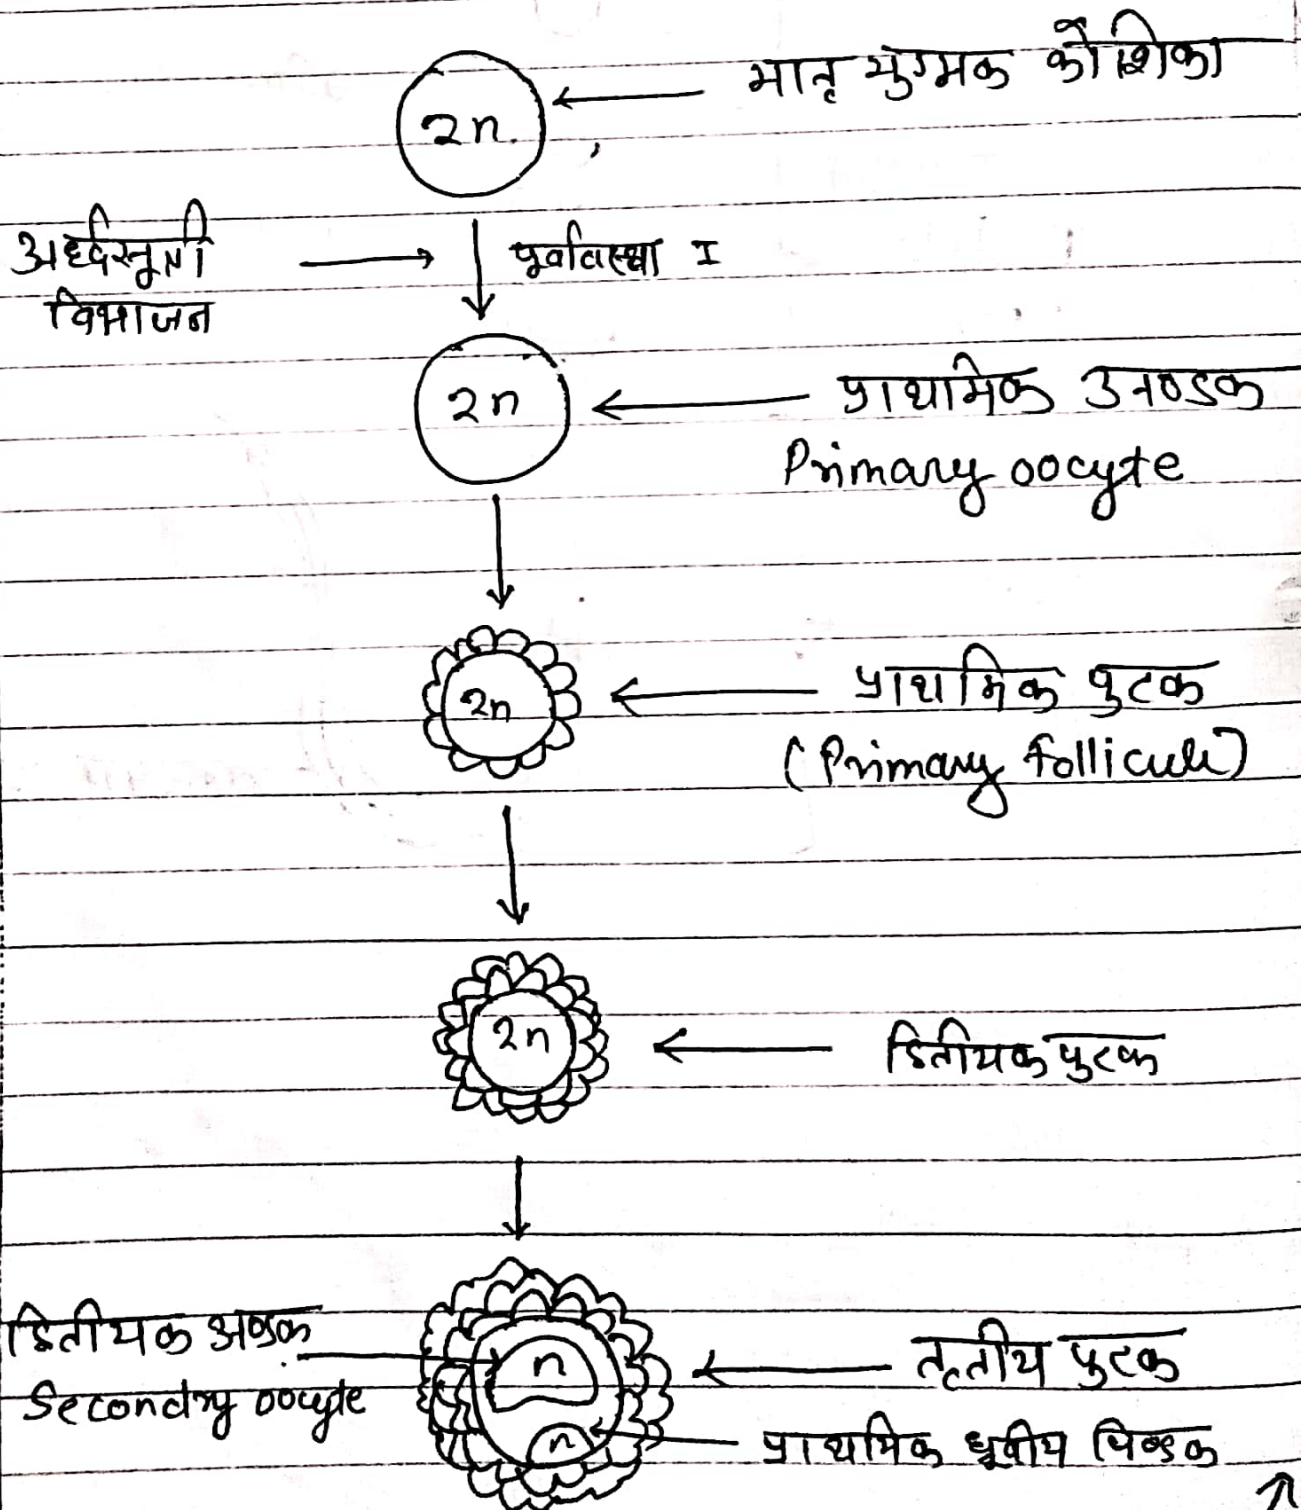 मातृ युग्मक कोशिका
2n
अर्ध्दसूत्री
विभाजन
पूर्वावस्था I
2n
प्राथमिक अण्डक
Primary oocyte
2n
प्राथमिक पुटक
(Primary follicule)
2n
द्वितीयक पुटक
द्वितीयक अण्डक
Secondry oocyte
n
तृतीय पुटक
n
प्राथमिक ध्रूवीय पिण्डक